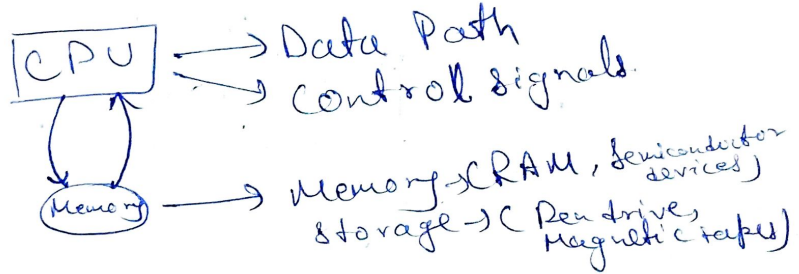 CPU
→ Data Path
→ Control signals.
Memory
→ Memory → (RAM, Semiconductor devices)
storage → (Pen drive, Magnetic tapes)